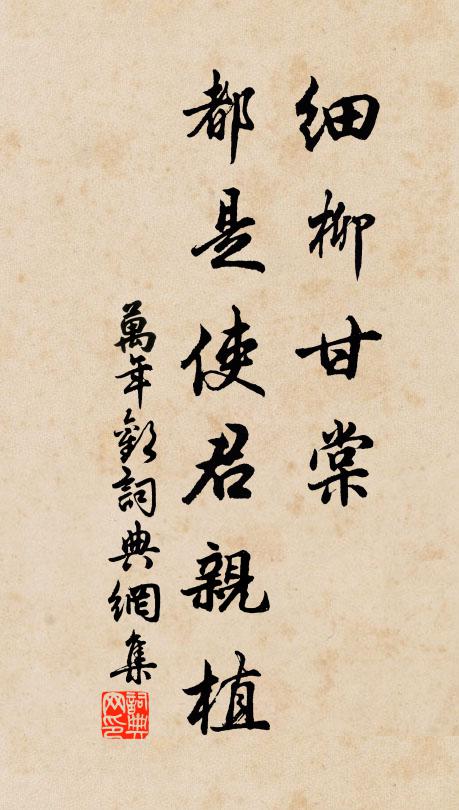 細柳甘棠
都是使君親植
萬年歡詞典網集
詞典网印